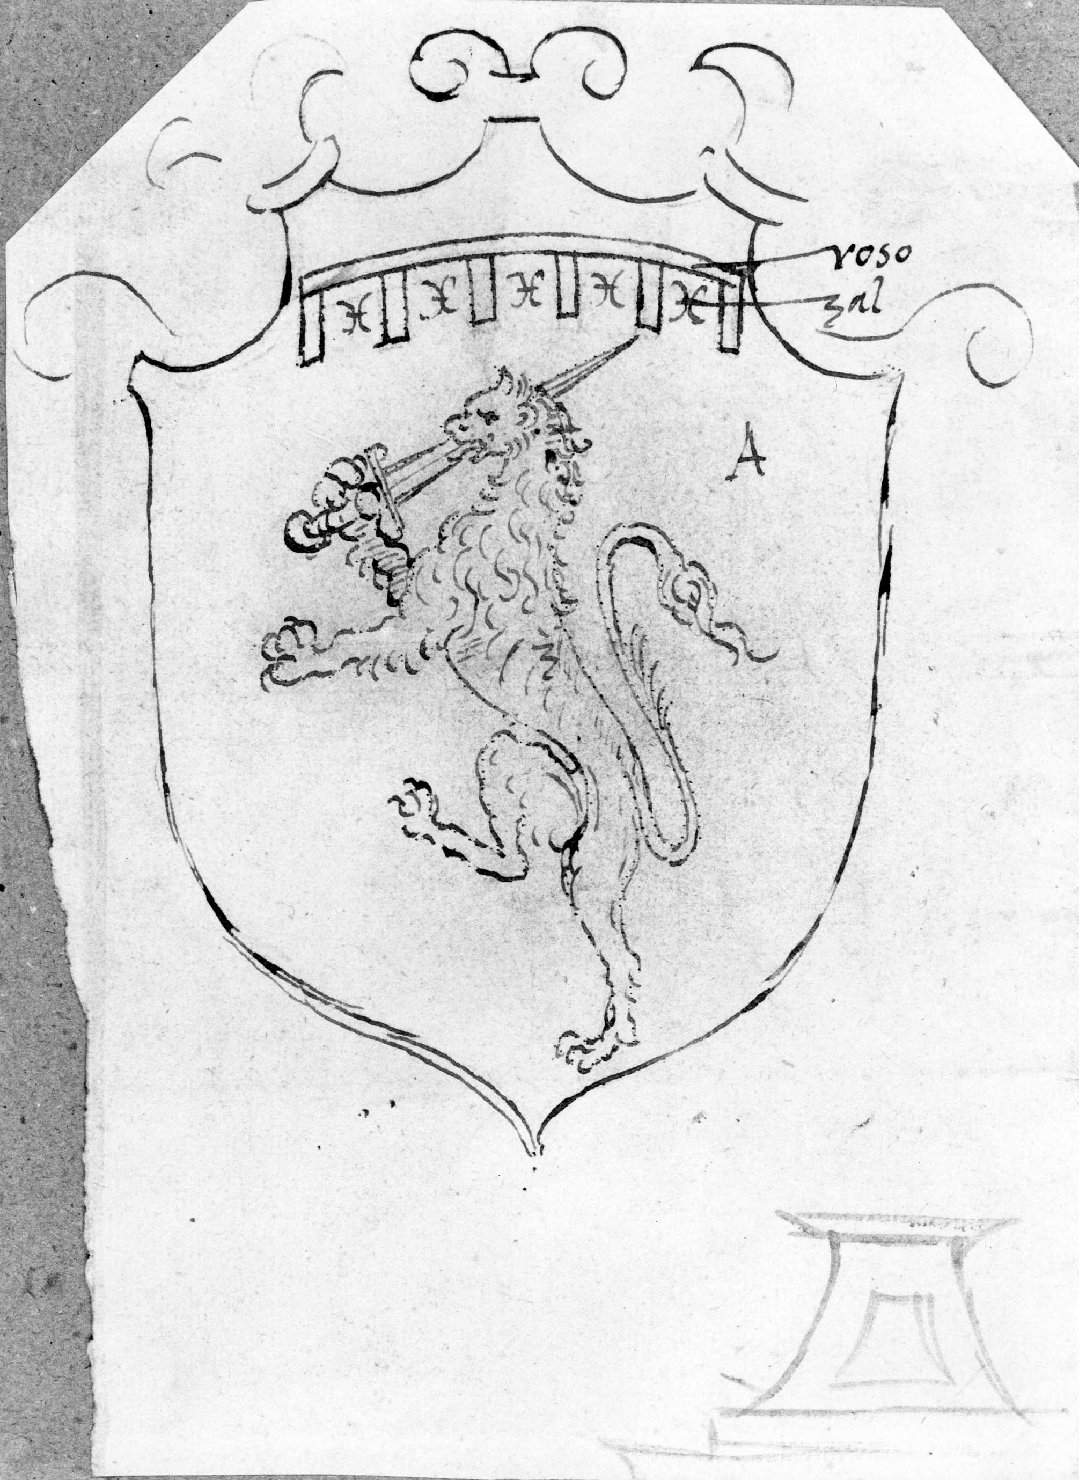 roso
zal
A